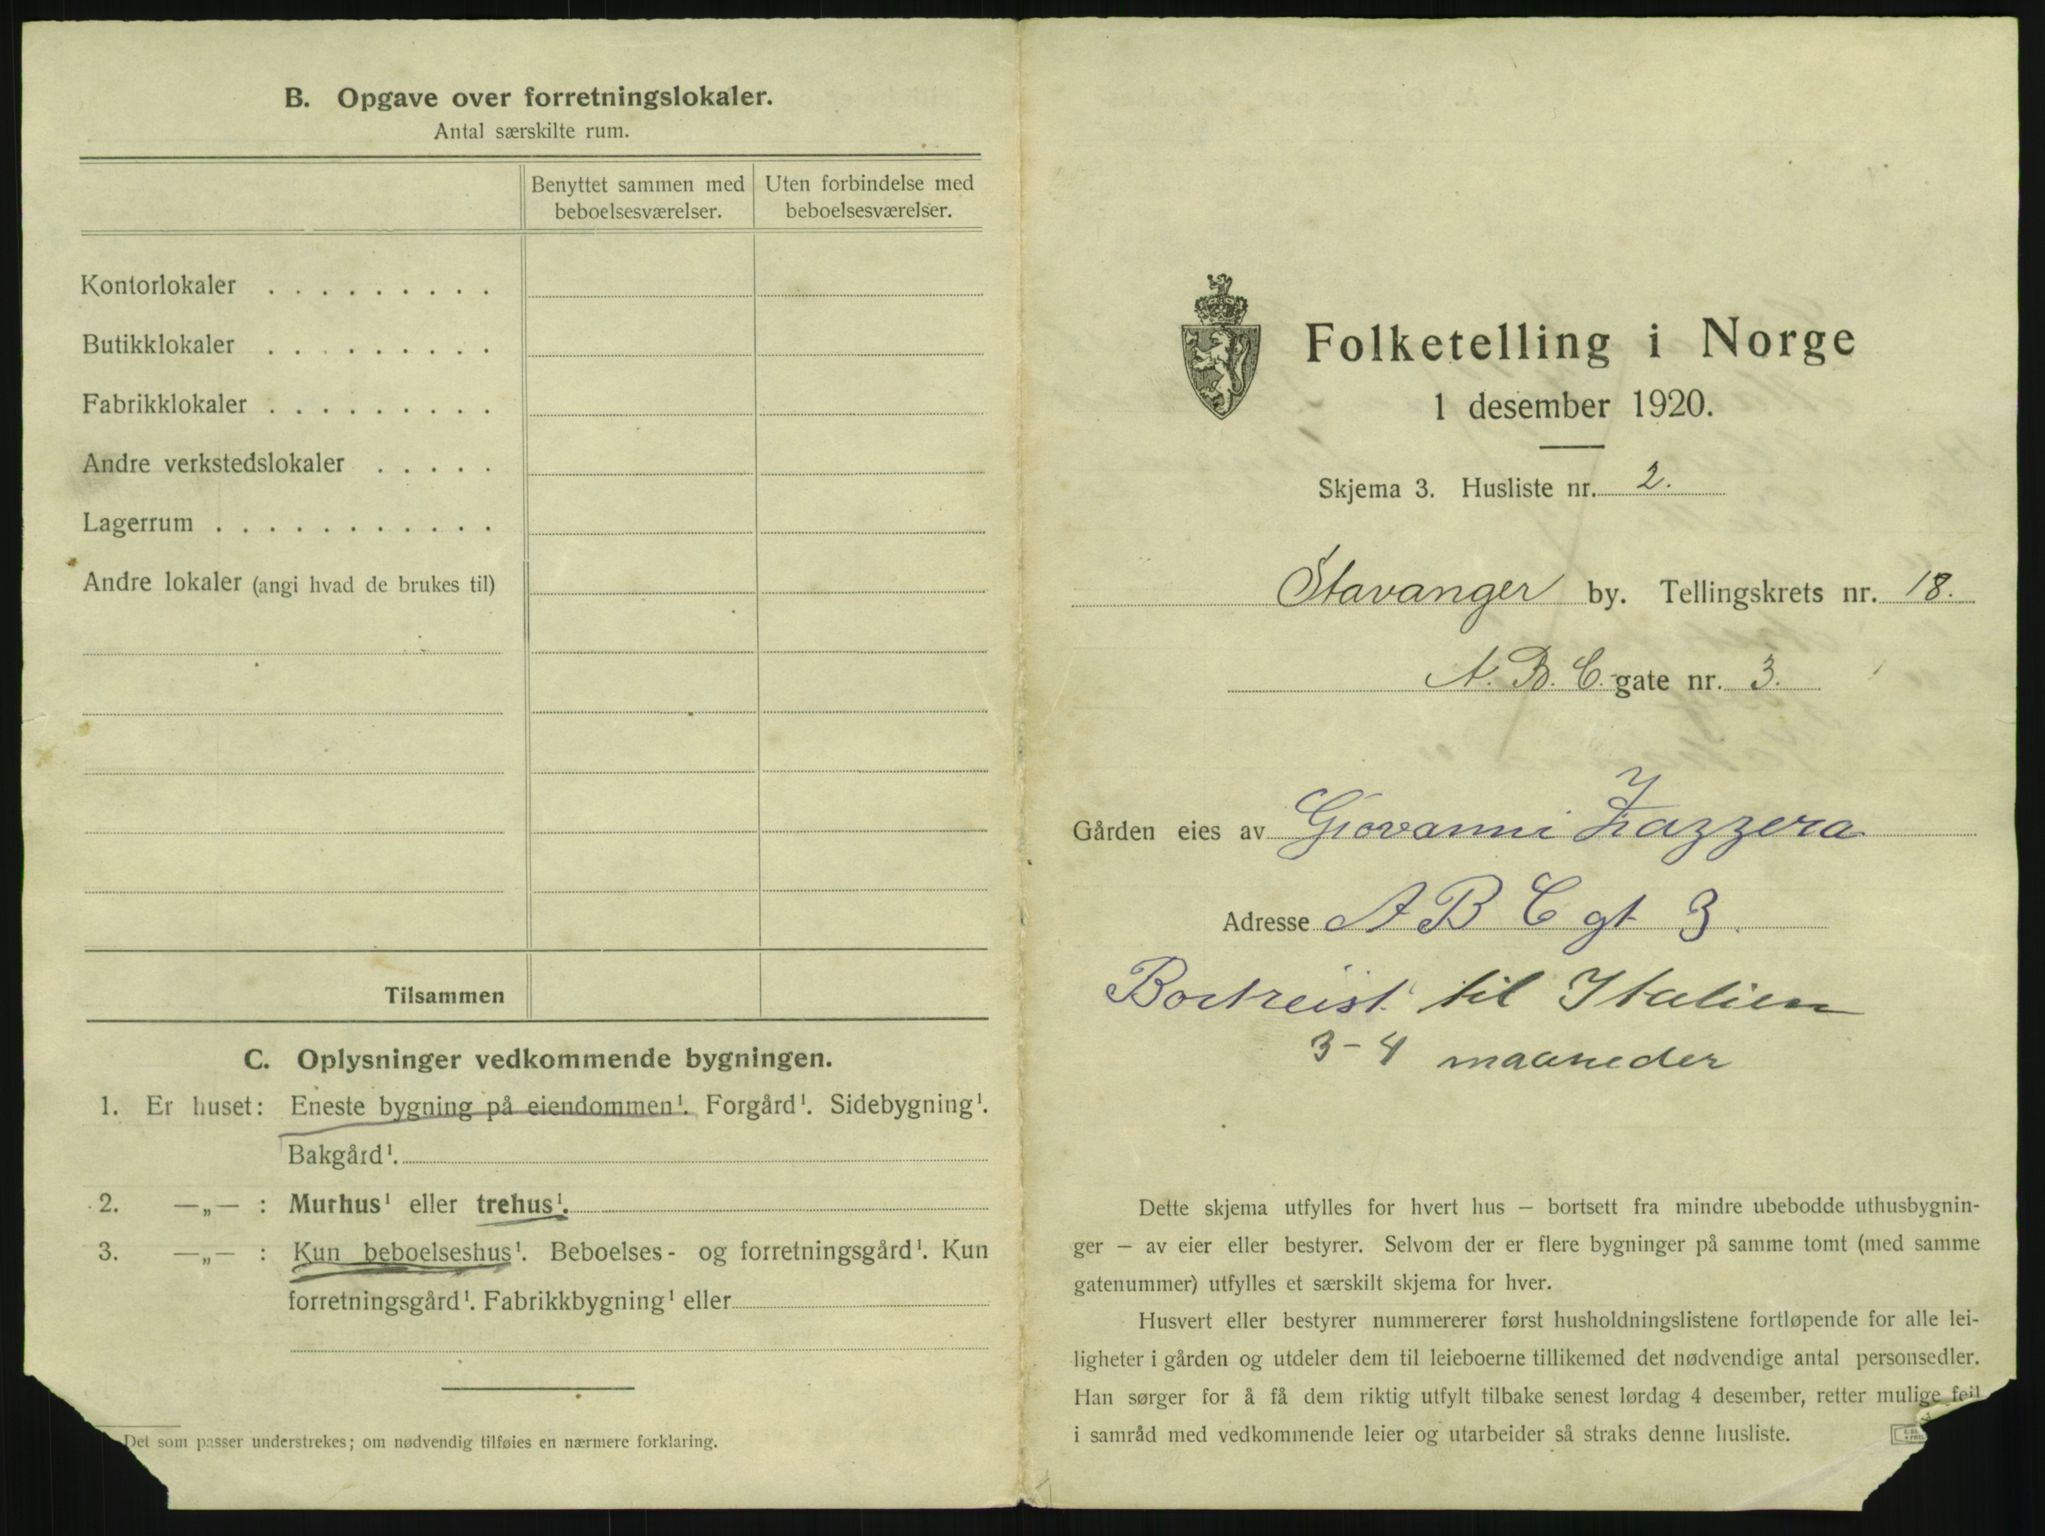 B. Opgave over forretningslokaler.
Antal særskilte rum.
Benyttet sammen med beboelsesværelser.
Uten forbindelse med beboelsesværelser.
Kontorlokaler . . . . . . . . .
Butikklokaler . . . . . . . . .
Fabrikklokaler . . . . . . . . .
Andre verkstedslokaler . . . . .
Lagerrum . . . . . . . . . . .
Andre lokaler (angi hvad de brukes til)
Tilsammen
C. Oplysninger vedkommende bygningen.
1. Er huset: Eneste bygning på eiendommen¹. Forgård¹. Sidebygning¹.
Bakgård¹.
2. —„— : Murhus¹ eller trehus¹.
3. —„— : Kun beboelseshus¹. Beboelses- og forretningsgård¹. Kun
forretningsgård¹. Fabrikkbygning¹ eller
Det som passer understrekes; om nødvendig tilføies en nærmere forklaring.
Folketelling i Norge
1 desember 1920.
Skjema 3. Husliste nr. 2.
Stavanger by. Tellingskrets nr. 18.
A. B. C. gate nr. 3.
Gården eies av Giovanni Zazzera
Adresse A B C gt 3.
Bortreist til Italien
3-4 maaneder
Dette skjema utfylles for hvert hus – bortsett fra mindre ubebodde uthusbygnin-
ger – av eier eller bestyrer. Selvom der er flere bygninger på samme tomt (med samme
gatenummer) utfylles et særskilt skjema for hver.
Husvert eller bestyrer nummererer først husholdningslistene fortløpende for alle lei-
ligheter i gården og utdeler dem til leieboerne tillikemed det nødvendige antal personsedler.
Han sørger for å få dem riktig utfylt tilbake senest lørdag 4 desember, retter mulige feil
i samråd med vedkommende leier og utarbeider så straks denne husliste.